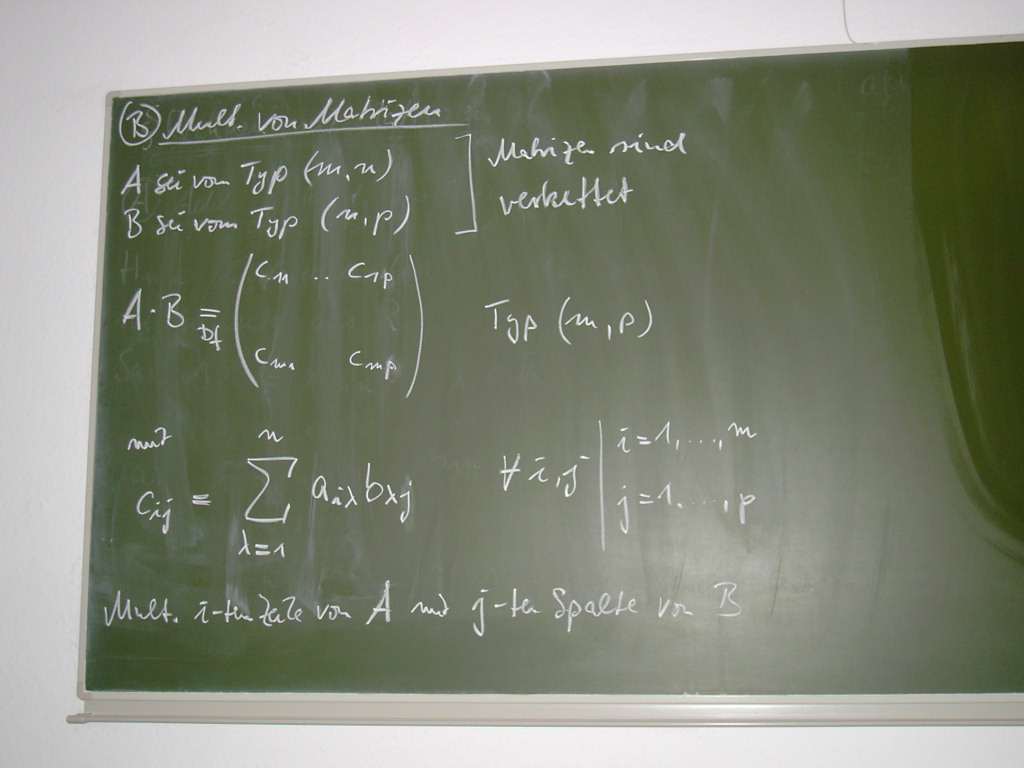 (B) Mult. von Matrizen
A sei vom Typ (m,n) ] Matrizen sind
B sei vom Typ (n,p) verkettet
A·B =Df ( c11 .. c1p
cm1 cmp ) Typ (m,p)
mit
cij = ∑ n λ=1 aiλ bλj ∀ i,j | i=1,...,m
j=1,...,p
Mult. i-ten Zeile von A mit j-ten Spalte von B